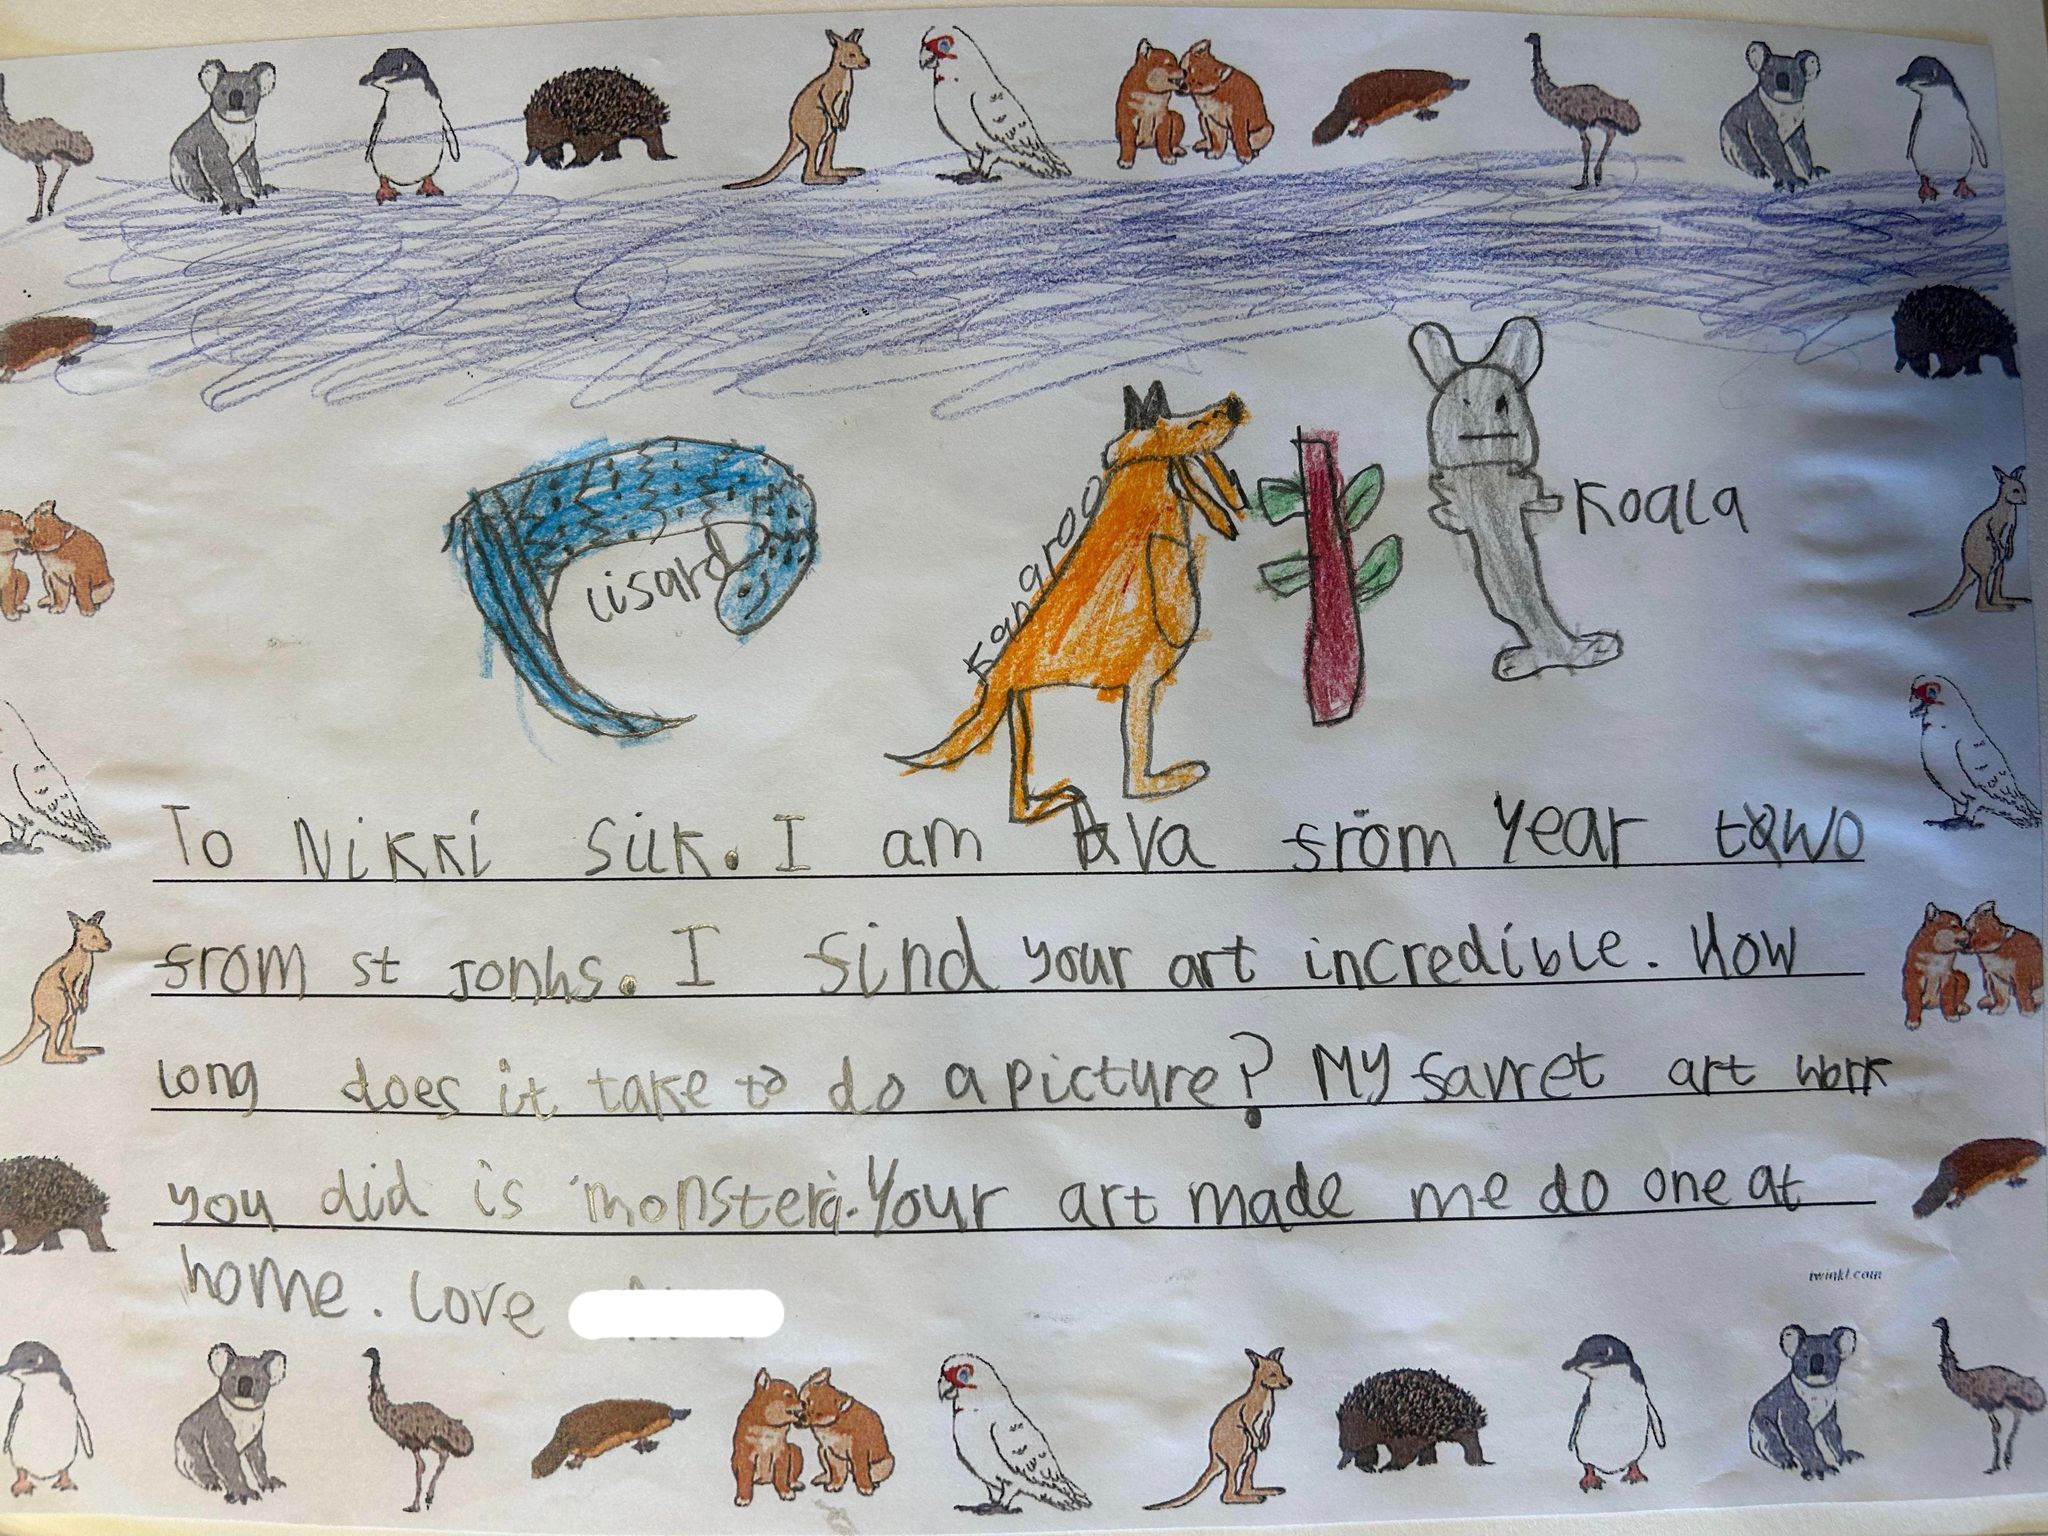 Lisard
Kangaroo
Koala
To Nikki Silk. I am Ava from Year two
from st Jonhs. I find your art incredible. How
long does it take to do a picture? My favret art work
you did is monstera. Your art made me do one at
home. Love
twinkl.com